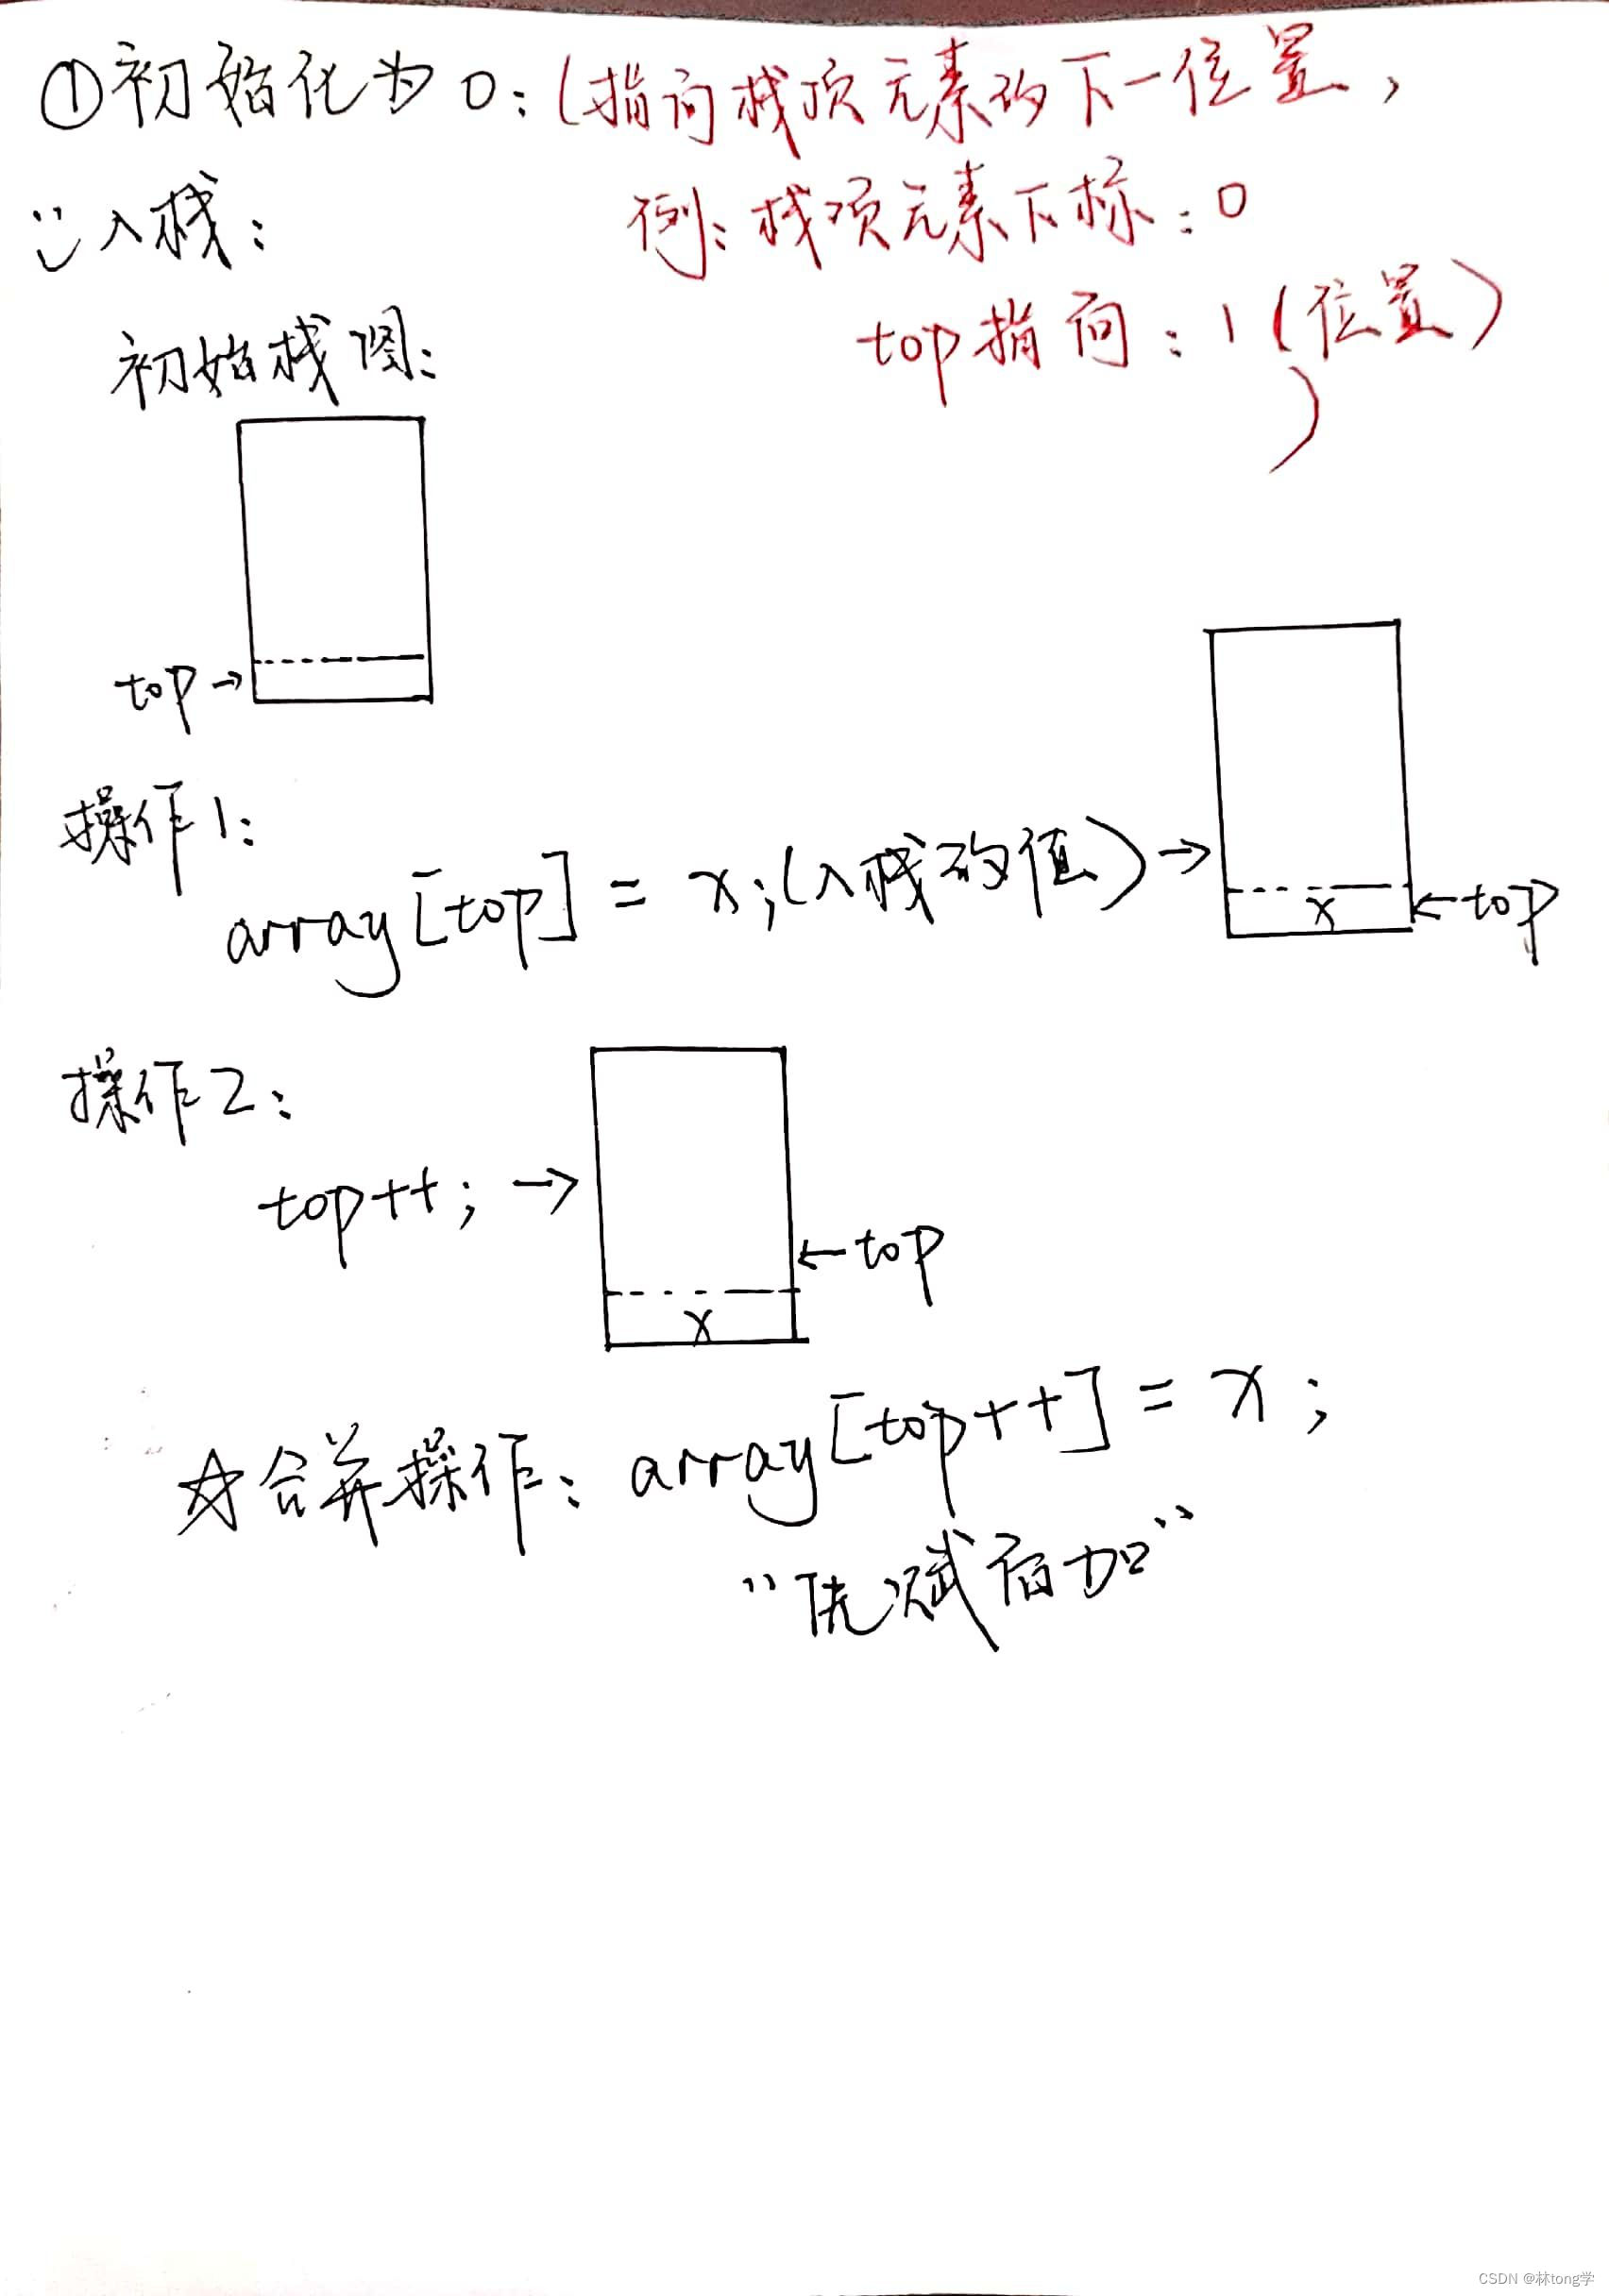 ①初始化为0:(指向栈顶元素的下一位置,
入栈:
例:栈顶元素下标:0
初始栈图:
top指向:1(位置)
)
top→
操作1:
array[top] = x;(入栈的值)→
x
←top
操作2:
top++; →
←top
x
☆合并操作: array[top++] = x;
"先赋后加"
CSDN @林tong学